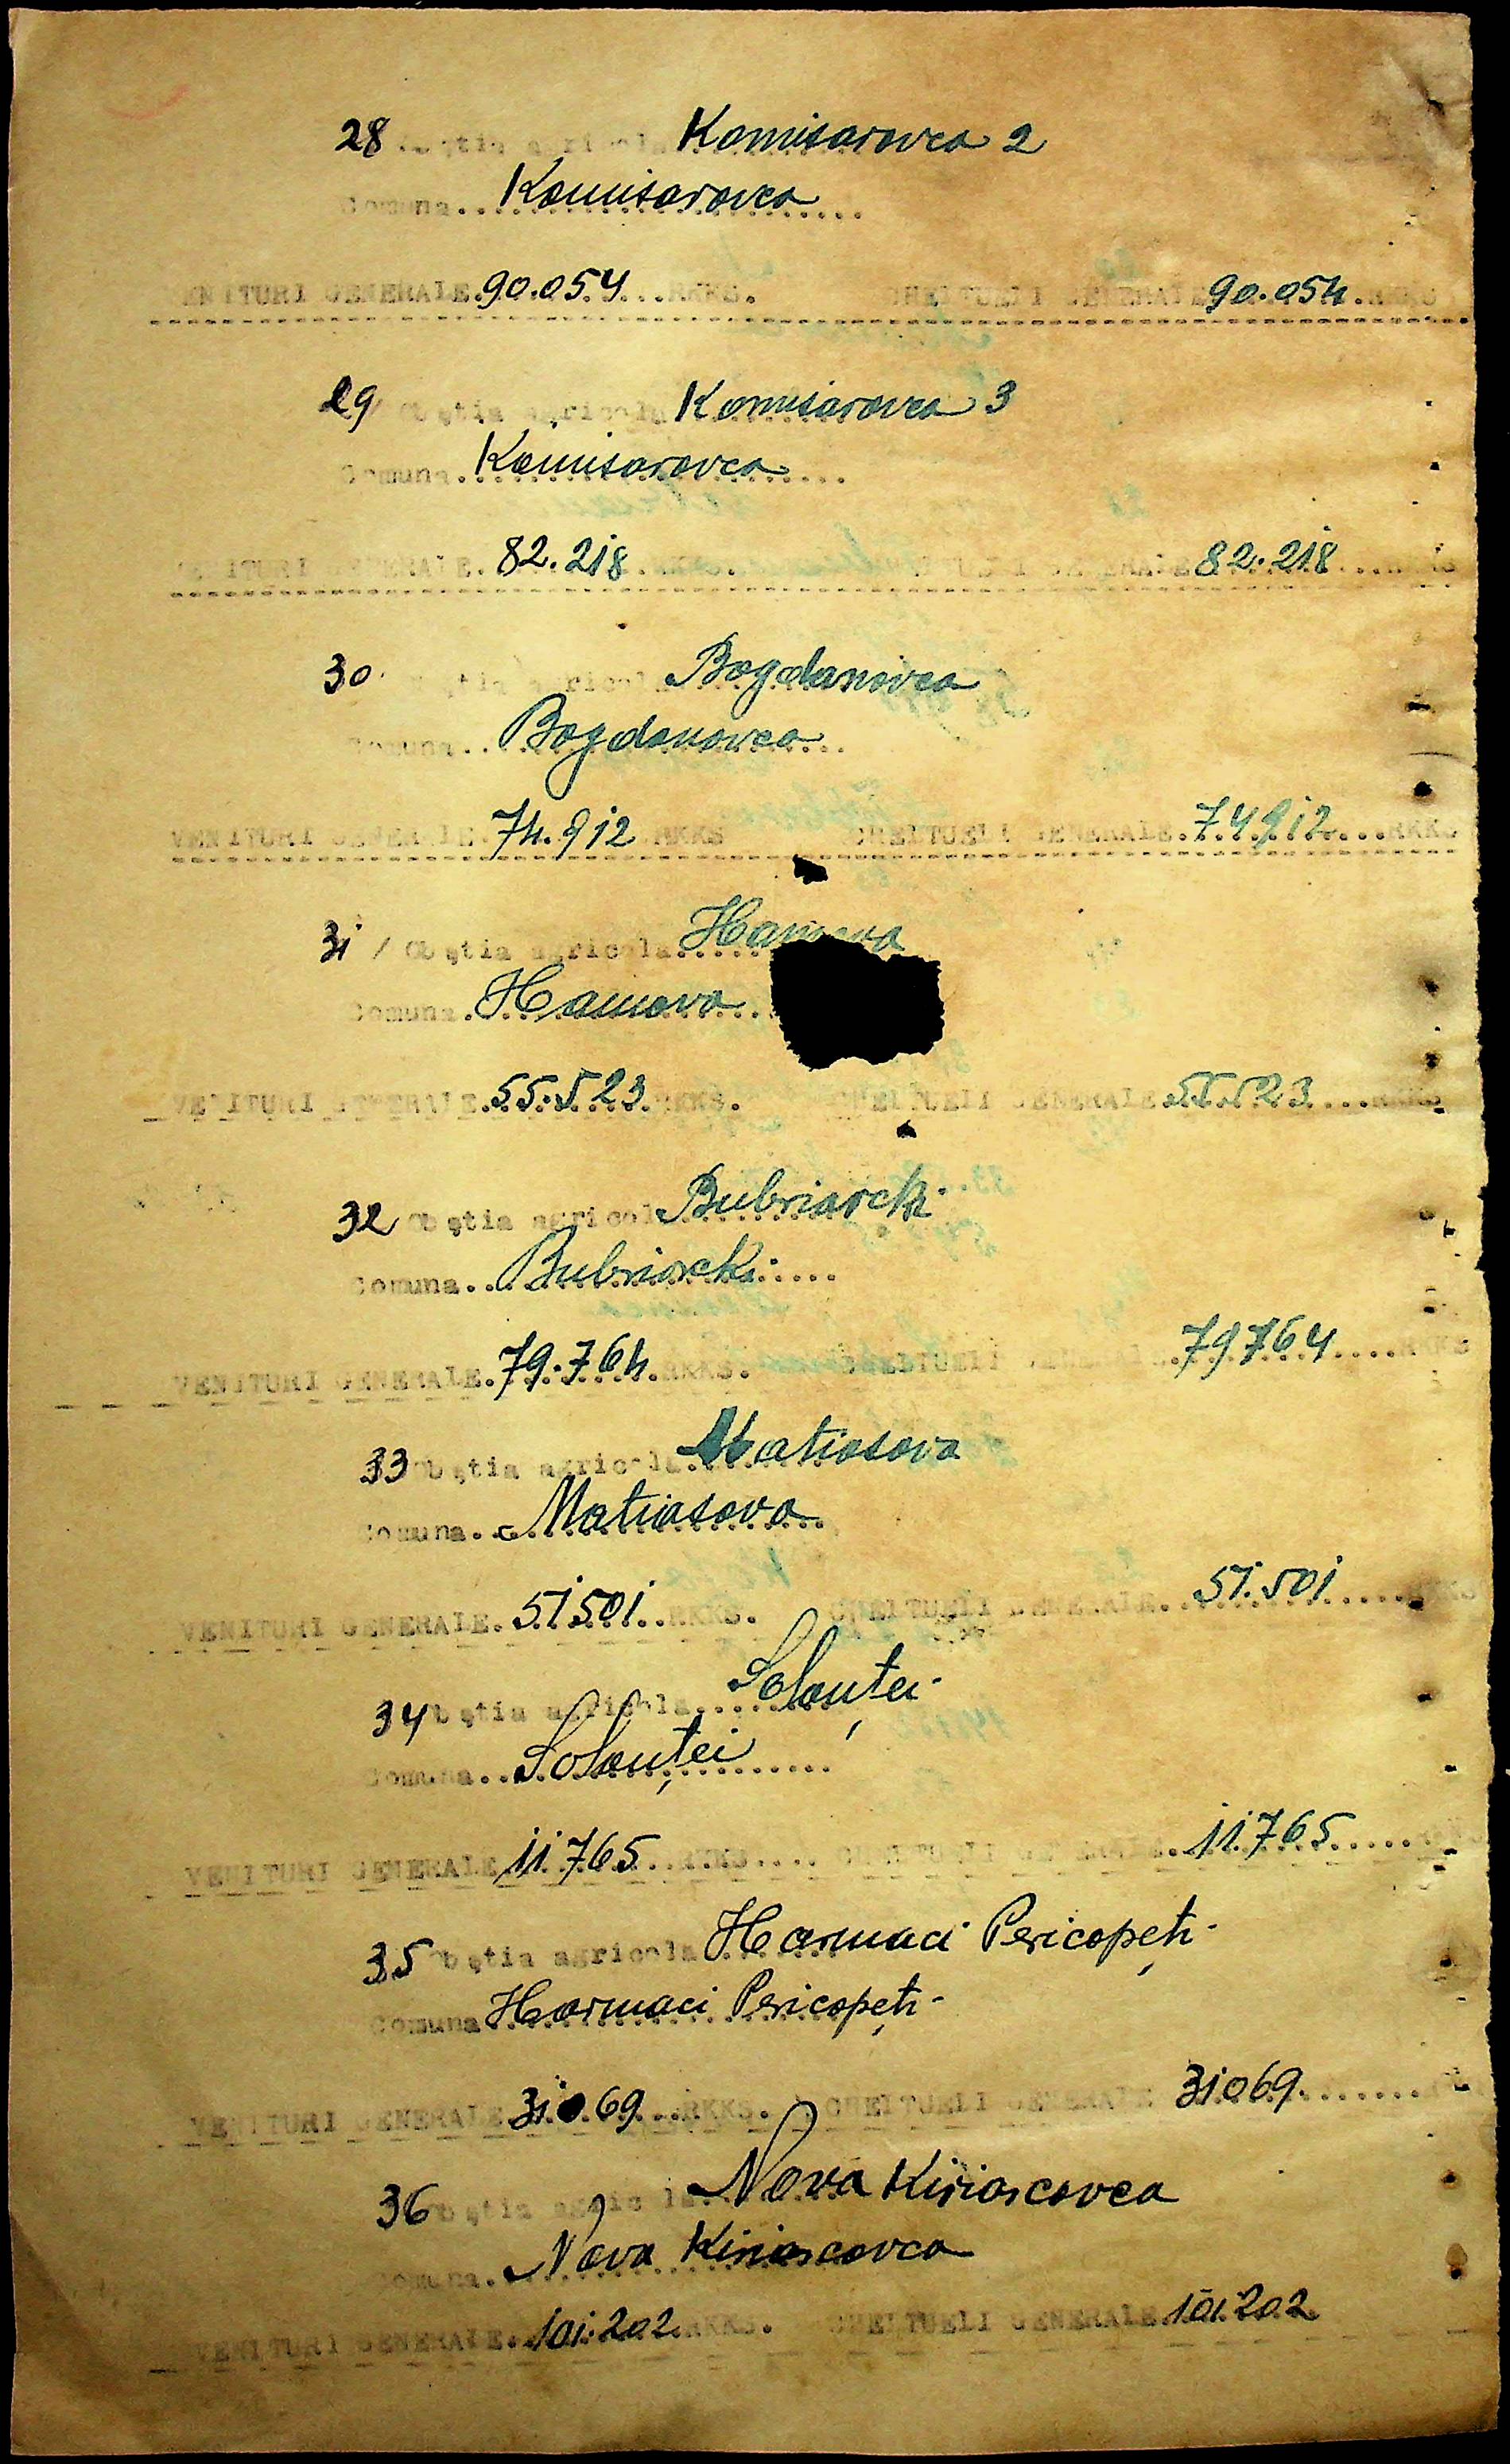 28 Obştia agricola Komisarovca 2
Comuna.. Komisarovca
VENITURI GENERALE. 90.054...RKKS. CHELTUELI GENERALE 90.054.RKKS
29 Obştia agricola Komisarovca 3
Comuna. Komisarovca
VENITURI GENERALE. 82.218.RKKS. CHELTUELI GENERALE 82.218...RKKS
30. Obştia agricola Bogdanovca
Comuna.. Bogdanovca
VENITURI GENERALE. 74.912 RKKS CHELTUELI GENERALE. 74912...RKKS
31 / Obştia agricola.....
Comuna. Hamova
VENITURI GENERALE. 55.523 RKKS. CHELTUELI GENERALE 55.523....RKKS
32 Obştia agricola Bubriarcki
Comuna.. Bubriarcki
VENITURI GENERALE. 79.764.RKKS. CHELTUELI GENERALE. 79764....RKKS
33 Obştia agricola. Matiasova
Comuna.. Matiasova
VENITURI GENERALE. 51501.RKKS. CHELTUELI GENERALE.. 51.501.....RKKS
34 Obştia agricola.. Solonţei
Comuna.. Solonţei
VENITURI GENERALE 11765..RKKS.... CHELTUELI GENERALE. 11765
35 Obştia agricola Harmaci Pericopeţi
Comuna Harmaci Pericopeţi
VENITURI GENERALE 31069...RKKS. CHELTUELI GENERALE 31069
36 Obştia agricola. Nova Kiriascovca
Comuna.. Nova Kiriascovca
VENITURI GENERALE. 101.202.RKKS. CHELTUELI GENERALE. 101.202